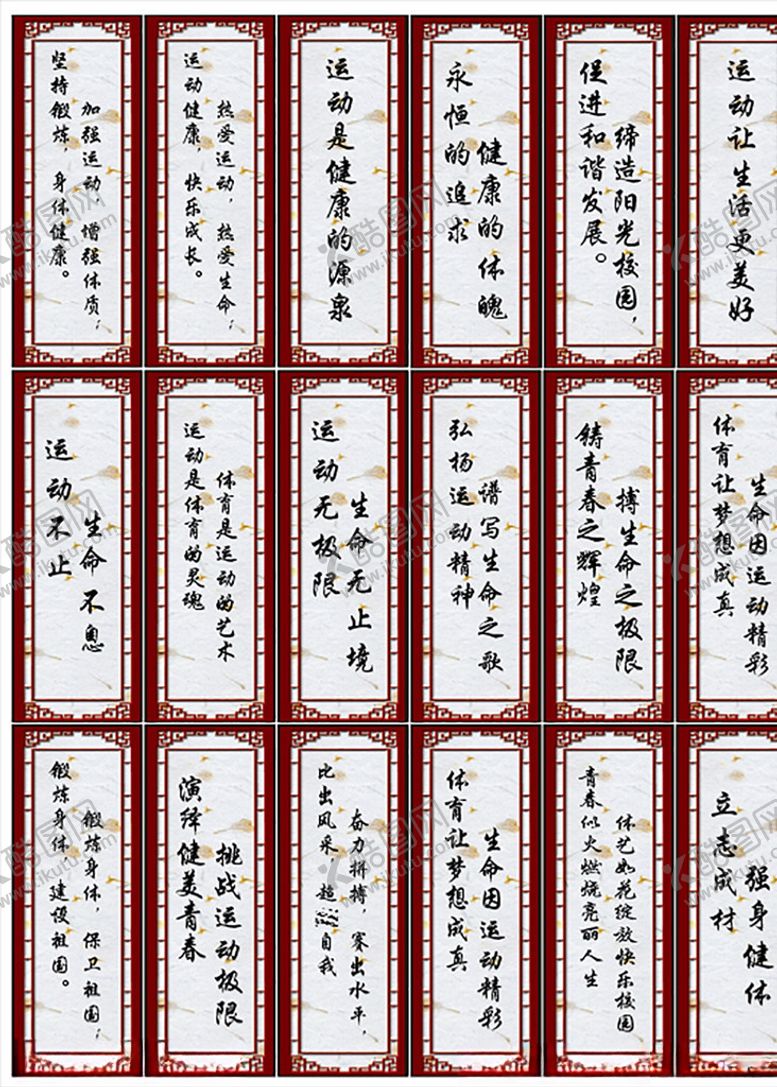 加强运动 增强体质；
坚持锻炼，身体健康。
热爱运动，热爱生命；
运动健康 快乐成长。
运动是健康的源泉
健康的体魄
永恒的追求
缔造阳光校园，
促进和谐发展。
运动让生活更美好
生命不息
运动不止
体育是运动的艺术
运动是体育的灵魂
生命无止境
运动无极限
谱写生命之歌
弘扬运动精神
搏生命之极限
铸青春之辉煌
生命因运动精彩
体育让梦想成真
锻炼身体，保卫祖国；
锻炼身体，建设祖国。
挑战运动极限
演绎健美青春
奋力拼搏，赛出水平，
比出风采，超 自我
生命因运动精彩
体育让梦想成真
体艺如花绽放快乐校园
青春似火燃烧亮丽人生
强身健体
立志成材
酷图网
www.ikutu.com